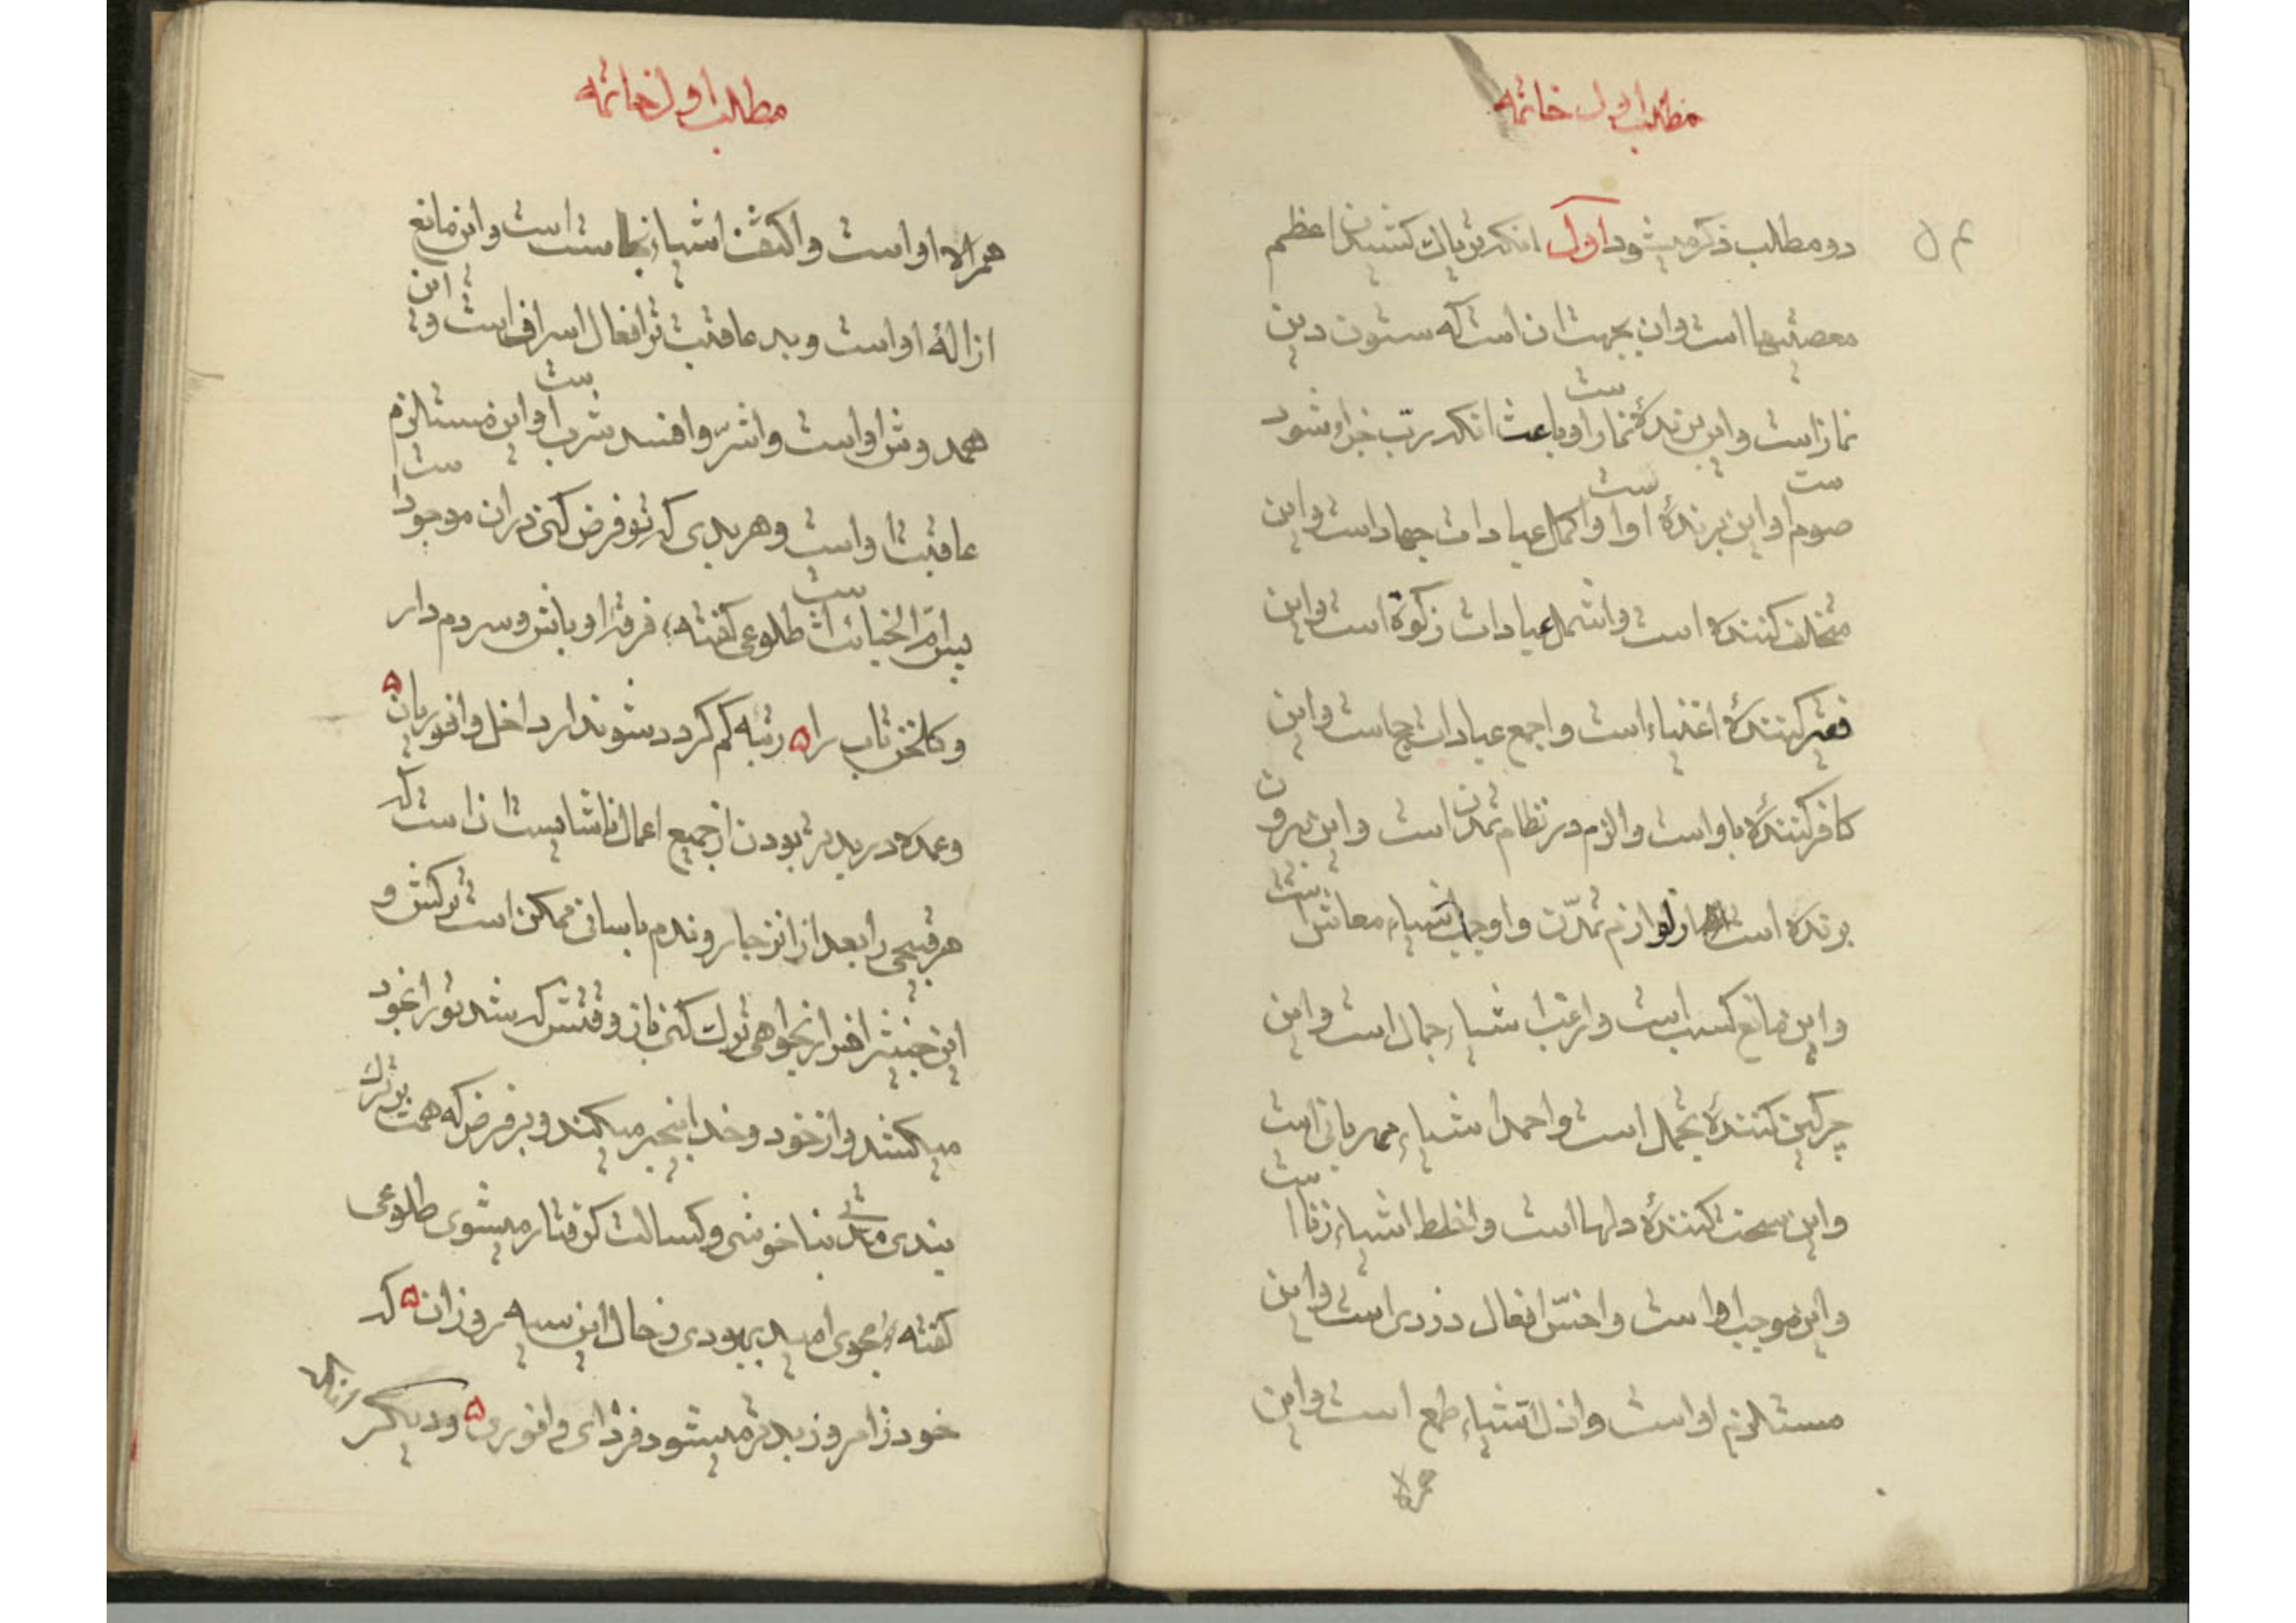 مطلب اول خاتمه
دو مطلب ذکر میشود اول انکه تریاک کشیدن اعظم
معصیتها است و ان بجهت ان است که ستون دین
نماز است و این برندهٔ نماز او باعث انکه ربّ جزاء شود
صوم است و این برندهٔ او است و اکمل عبادات جهاد است و این
متخلف کننده است و اشمل عبادات زکوة است و این
فقیر کنندهٔ اغنیاء است و اجمع عبادات حج است و این
کافر کننده باو است و الزم در نظام تمدن است و این بیرون
برنده است از لوازم تمدّن و اوجب اشیاء معاش است
و این مانع کسب است و ارغب اشیاء جمال است و این
چرکین کنندهٔ تجمل است و احمد اشیاء مهربانی است
و این سخت کنندهٔ دلها است و اغلط اشیاء زنا است
و این موجب او است و اخسّ افعال دزدی است و این
مستلزم او است و اذل اشیاء طمع است و این
مطلب اول خاتمه
همراه او است و اکثف اشیاء نجاست است و این مانع
ازالهٔ او است و بد عاقبت تر افعال اسراف است و این
همدوش او است و اشرّ و افسد شرب است و این مستلزم
عاقبت او است و هر بدی که تو فرض کنی در ان موجود است
پس امّ الخبائث است طلوعی گفته فرقۀ اوباش و سردمدار
و کلخن تاب را ۵ رتبه کم کردد شوند ار داخل وافوریان ۵
و عمده در بدتر بودن از جمیع اعمال ناشایست ان است که
هر قبیحی را بعد از انزجار و ندم باسانی ممکن است ترکش و
این خبیث را هر از بخواهی ترک کنی باز وقتش که شد تو را بخود
میکشد و از خود و خدا بیخبر میکند و بر فرض که همت بترک
بندی مدتی بناخوشی و کسالت کرفتار میشوی طلوعی
گفته مجوی امید ببهودی ز حال این سیه روزان ۵ که
خود ز امروز بدتر میشود فردای وافوری ۵ و دیکر